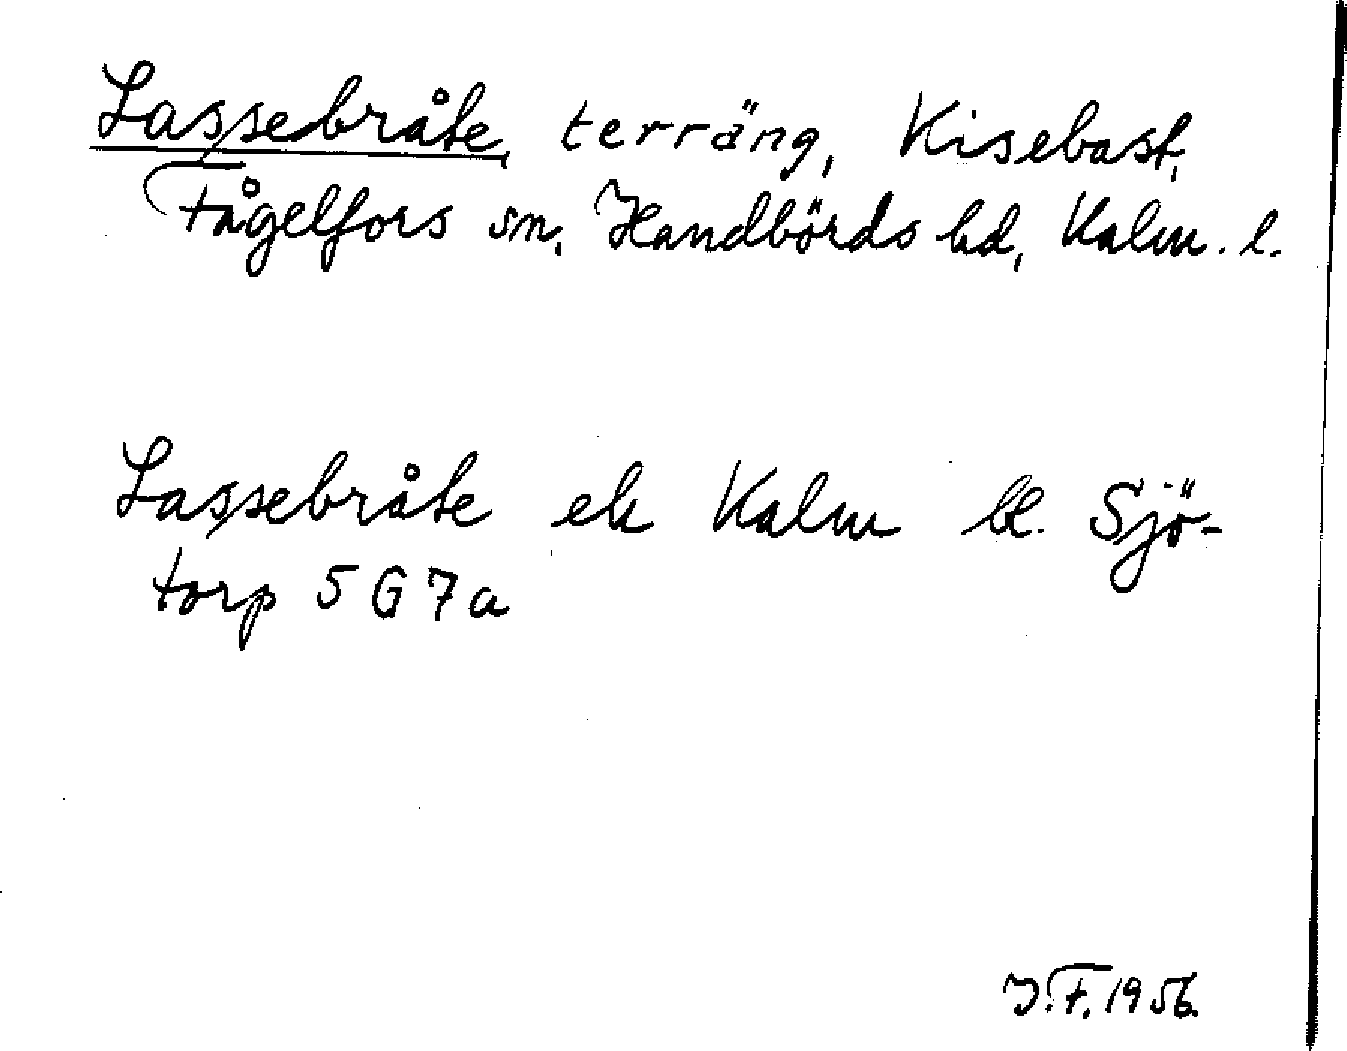 Lassebråte, terräng, Kisebast,
Fågelfors sn, Handbörds hd, Kalm. l.
Lassebråte ek Kalm bl. Sjö-
torp 5 G 7a
J.F. 1956.